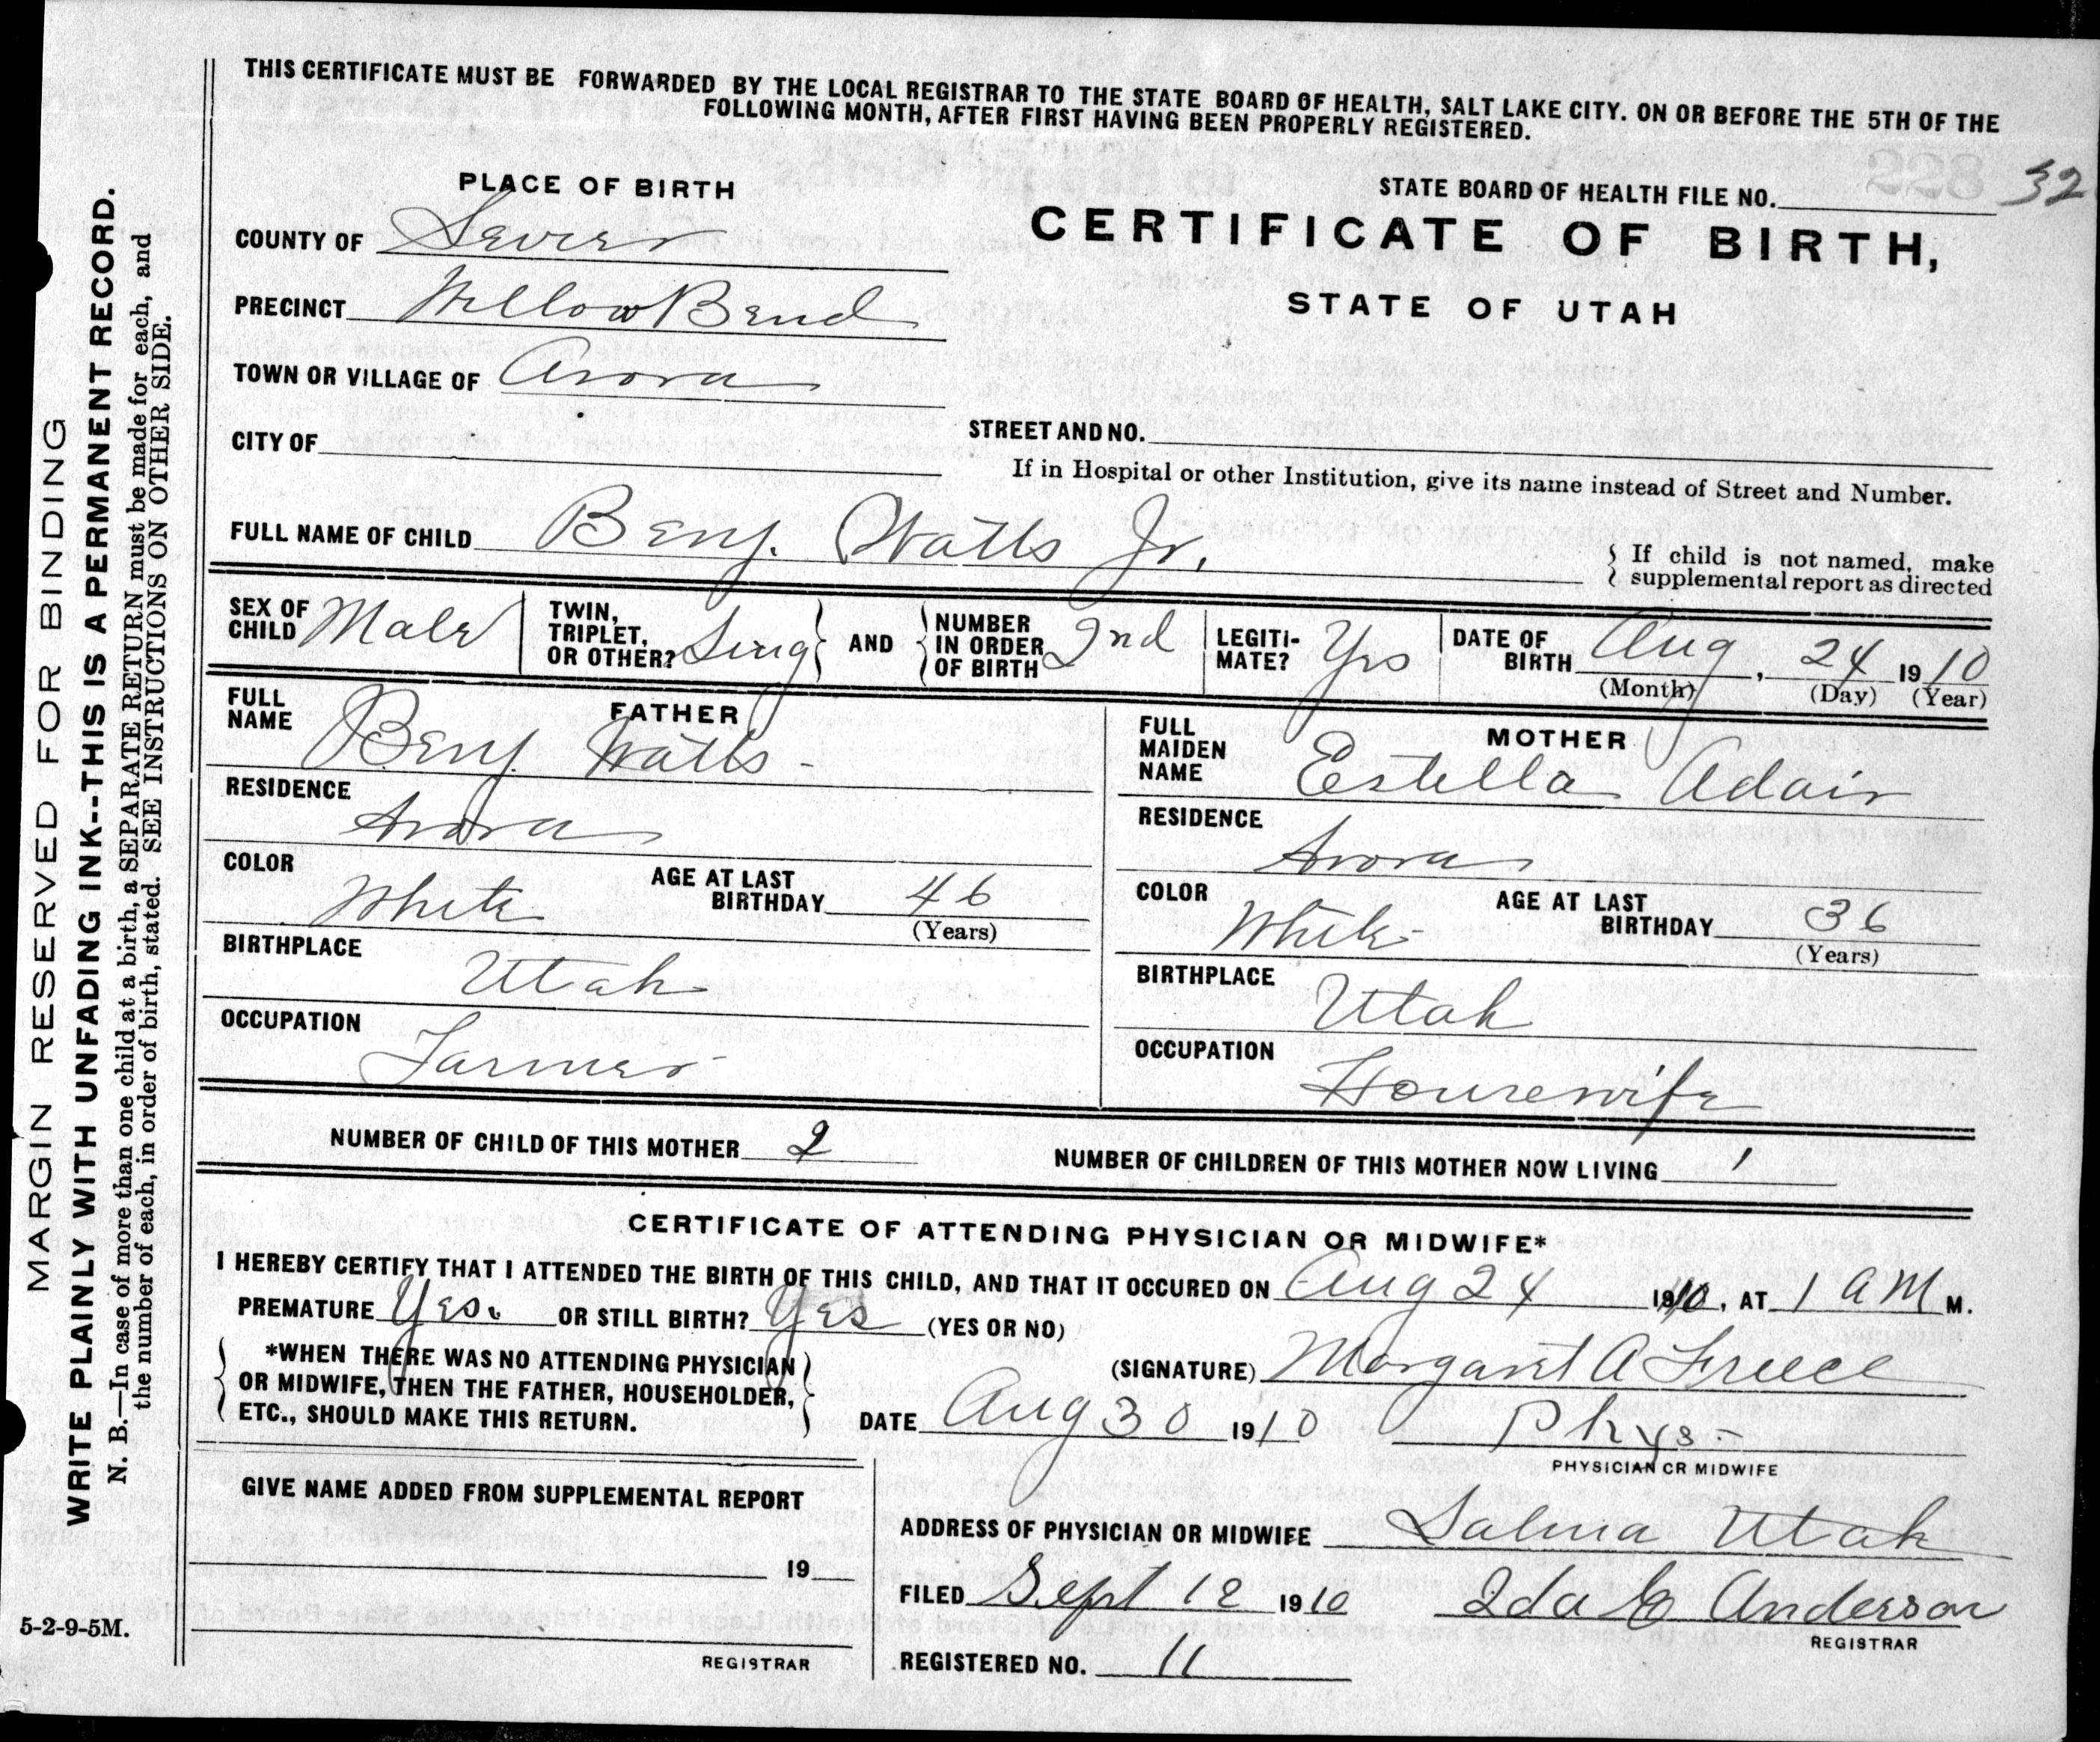 THIS CERTIFICATE MUST BE FORWARDED BY THE LOCAL REGISTRAR TO THE STATE BOARD OF HEALTH, SALT LAKE CITY. ON OR BEFORE THE 5TH OF THE
FOLLOWING MONTH, AFTER FIRST HAVING BEEN PROPERLY REGISTERED.
PLACE OF BIRTH
STATE BOARD OF HEALTH FILE NO. 32
COUNTY OF Sevier
CERTIFICATE OF BIRTH,
PRECINCT Willow Bend
STATE OF UTAH
TOWN OR VILLAGE OF Arora
STREET AND NO.
CITY OF
If in Hospital or other Institution, give its name instead of Street and Number.
FULL NAME OF CHILD Benj. Watts Jr.
If child is not named, make
supplemental report as directed
SEX OF CHILD Male
TWIN, TRIPLET, OR OTHER? Sing
AND
NUMBER IN ORDER OF BIRTH 2nd
LEGITI-MATE? Yes
DATE OF BIRTH Aug, 24 1910
(Month) (Day) (Year)
FATHER
FULL NAME Benj Watts-
RESIDENCE Arora
COLOR White
AGE AT LAST BIRTHDAY 46
(Years)
BIRTHPLACE Utah
OCCUPATION Farmer
MOTHER
FULL MAIDEN NAME Estella Adair
RESIDENCE Arora
COLOR White
AGE AT LAST BIRTHDAY 36
(Years)
BIRTHPLACE Utah
OCCUPATION Housewife
NUMBER OF CHILD OF THIS MOTHER 2
NUMBER OF CHILDREN OF THIS MOTHER NOW LIVING 1
CERTIFICATE OF ATTENDING PHYSICIAN OR MIDWIFE*
I HEREBY CERTIFY THAT I ATTENDED THE BIRTH OF THIS CHILD, AND THAT IT OCCURED ON Aug 24 1910, AT 1 AM M.
PREMATURE Yes. OR STILL BIRTH? Yes (YES OR NO)
*WHEN THERE WAS NO ATTENDING PHYSICIAN
OR MIDWIFE, THEN THE FATHER, HOUSEHOLDER,
ETC., SHOULD MAKE THIS RETURN.
(SIGNATURE) Margaret A Freece
DATE Aug 30 1910 Phys-
PHYSICIAN OR MIDWIFE
GIVE NAME ADDED FROM SUPPLEMENTAL REPORT
19
REGISTRAR
ADDRESS OF PHYSICIAN OR MIDWIFE Salina Utah
FILED Sept 12 1910 Ida E Anderson
REGISTRAR
REGISTERED NO. 11
MARGIN RESERVED FOR BINDING
WRITE PLAINLY WITH UNFADING INK--THIS IS A PERMANENT RECORD.
N. B.—In case of more than one child at a birth, a SEPARATE RETURN must be made for each, and
the number of each, in order of birth, stated. SEE INSTRUCTIONS ON OTHER SIDE.
5-2-9-5M.